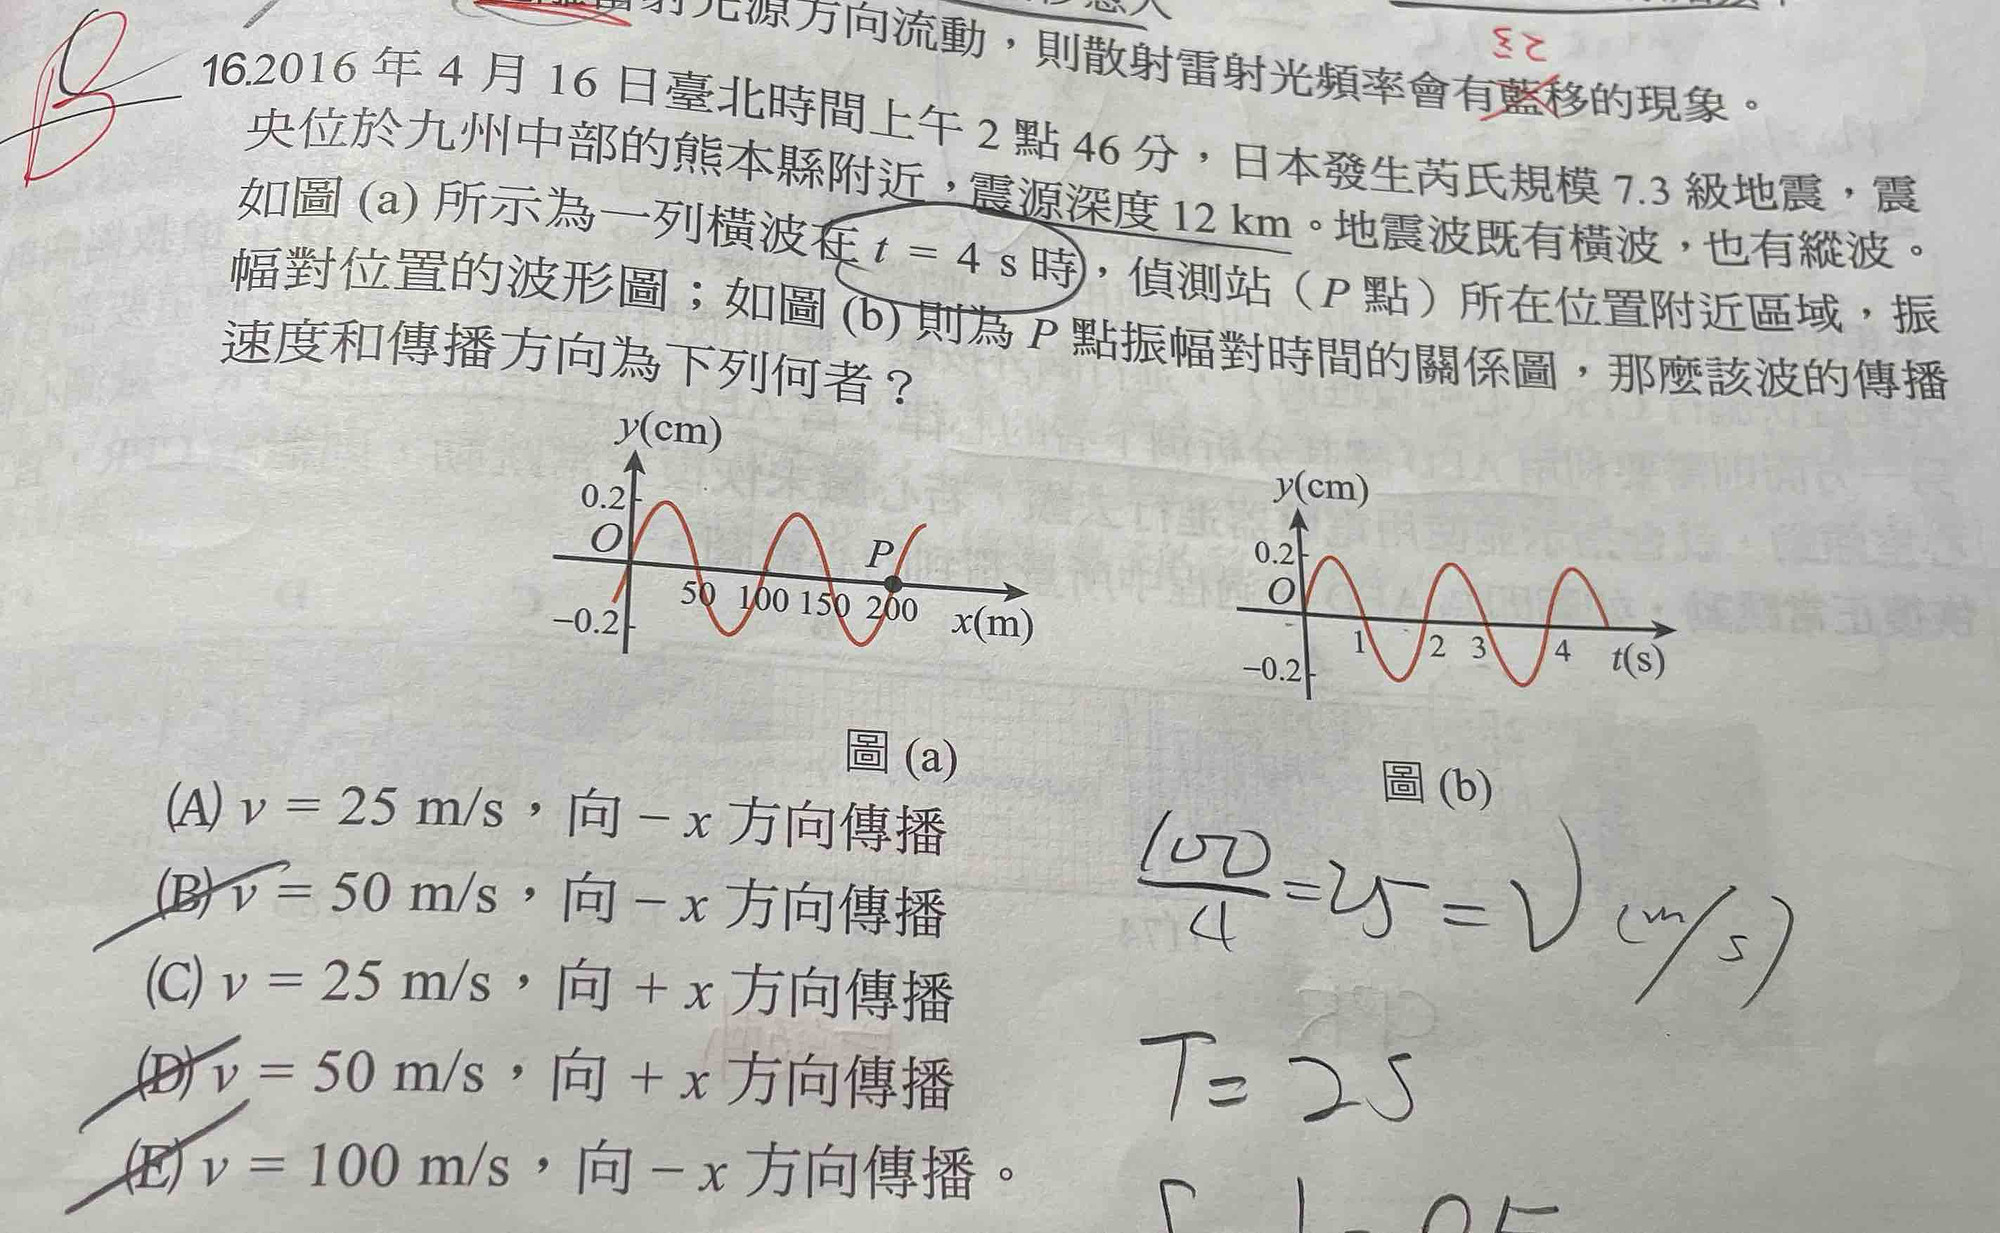 射光源方向流動，則散射雷射光頻率會有藍移的現象。
紅
B
16.2016 年 4 月 16 日臺北時間上午 2 點 46 分，日本發生芮氏規模 7.3 級地震，震
央位於九州中部的熊本縣附近，震源深度 12 km。地震波既有橫波，也有縱波。
如圖 (a) 所示為一列橫波在 t = 4 s 時，偵測站（P 點）所在位置附近區域，振
幅對位置的波形圖；如圖 (b) 則為 P 點振幅對時間的關係圖，那麼該波的傳播
速度和傳播方向為下列何者？
y(cm)
0.2
O
P
50 100 150 200
x(m)
−0.2
圖 (a)
y(cm)
0.2
O
1 2 3 4
t(s)
−0.2
圖 (b)
(A) v = 25 m/s，向 − x 方向傳播
(B) v = 50 m/s，向 − x 方向傳播
(C) v = 25 m/s，向 + x 方向傳播
(D) v = 50 m/s，向 + x 方向傳播
(E) v = 100 m/s，向 − x 方向傳播。
100/4 = 25 = V (m/s)
T = 2s